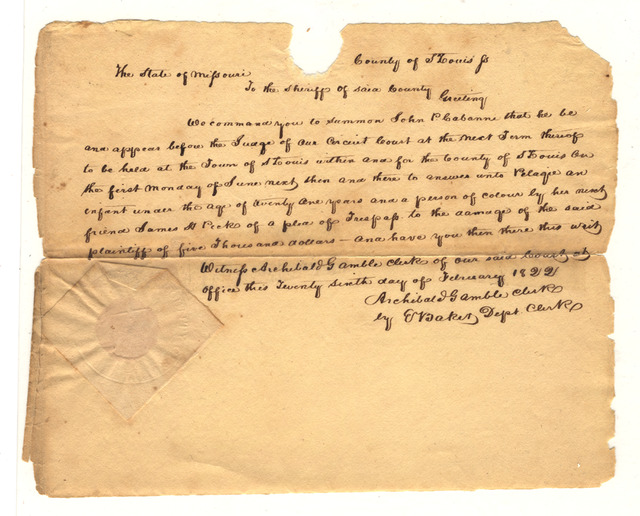 County of St Louis ss
The State of Missouri
To the Sheriff of said County
Greeting
We command you to summon John P Cabanne that he be
and appear before the Judge of our Circuit Court at the next Term thereof
to be held at the Town of St Louis within and for the County of St Louis on
the first Monday of June next then and there to answer unto Blaque an
infant under the age of twenty one years and a person of colour by her next
friend James H Peck of a plea of Trespass to the damage of the said
plaintiff of five Thousand dollars — and have you then there this writ
Witness Archibald Gamble Clerk of our said Court at
office this Twenty Sixth day of February 1822
Archibald Gamble Clerk
by Baker Dept Clerk